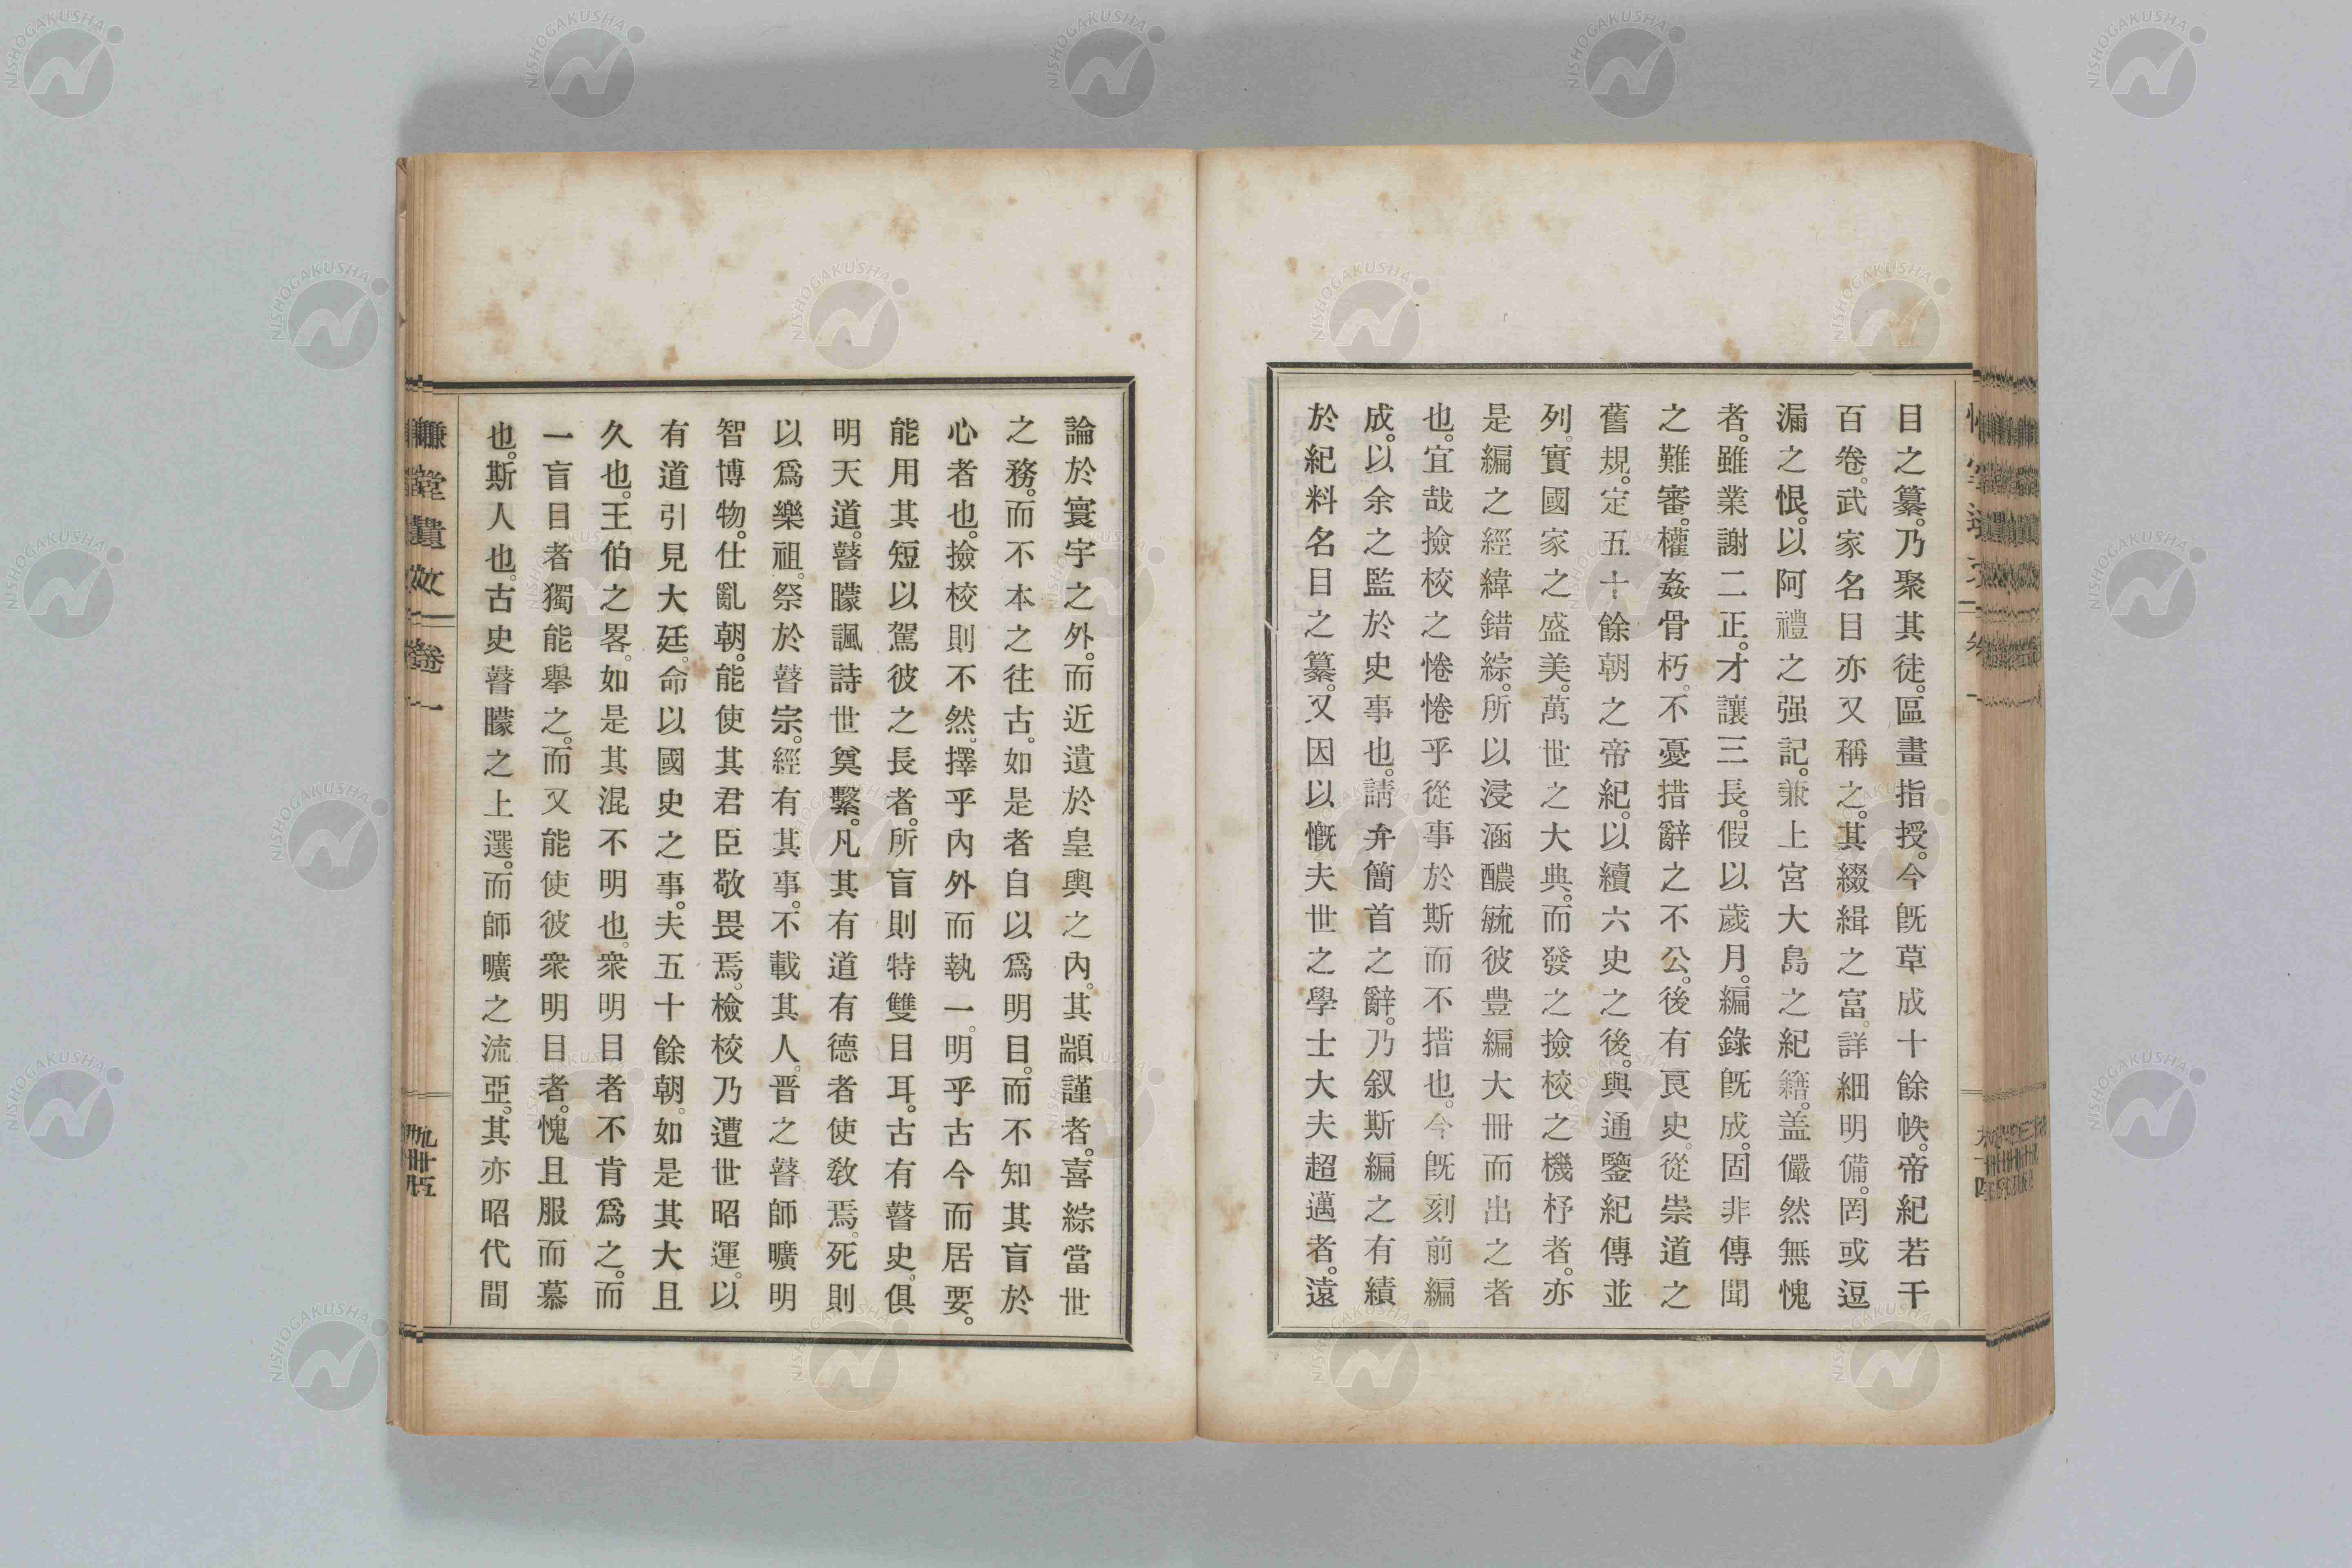 目之纂。乃聚其徒。區畫指授。今既草成十餘帙。帝紀若干
百卷。武家名目亦又稱之。其綴緝之富。詳細明備。罔或逗
漏之恨。以阿禮之强記。兼上宮大島之紀籍。盖儼然無愧
者。雖業謝二正。才讓三長。假以歲月。編錄既成。固非傳聞
之難審。權姦骨朽。不憂措辭之不公。後有良史。從崇道之
舊規。定五十餘朝之帝紀。以續六史之後。與通鑒紀傳並
列。實國家之盛美。萬世之大典。而發之撿校之機杼者。亦
是編之經緯錯綜。所以浸涵醲毓彼豊編大冊而出之者
也。宜哉撿校之惓惓乎從事於斯而不措也。今既刻前編
成。以余之監於史事也。請弁簡首之辭。乃叙斯編之有績
於紀料名目之纂。又因以慨夫世之學士大夫超邁者。遠
論於寰宇之外。而近遺於皇輿之內。其顓謹者。喜綜當世
之務。而不本之往古。如是者自以爲明目。而不知其盲於
心者也。撿校則不然。擇乎內外而執一。明乎古今而居要。
能用其短以駕彼之長者。所盲則特雙目耳。古有瞽史。俱
明天道。瞽矇諷詩世奠繫。凡其有道有德者使敎焉。死則
以爲樂祖。祭於瞽宗。經有其事。不載其人。晋之瞽師曠明
智博物。仕亂朝。能使其君臣敬畏焉。檢校乃遭世昭運。以
有道引見大廷。命以國史之事。夫五十餘朝。如是其大且
久也。王伯之畧。如是其混不明也。衆明目者不肯爲之。而
一盲目者獨能擧之。而又能使彼衆明目者。愧且服而慕
也。斯人也。古史瞽矇之上選。而師曠之流亞。其亦昭代間
慊堂遺文 卷一
九十五